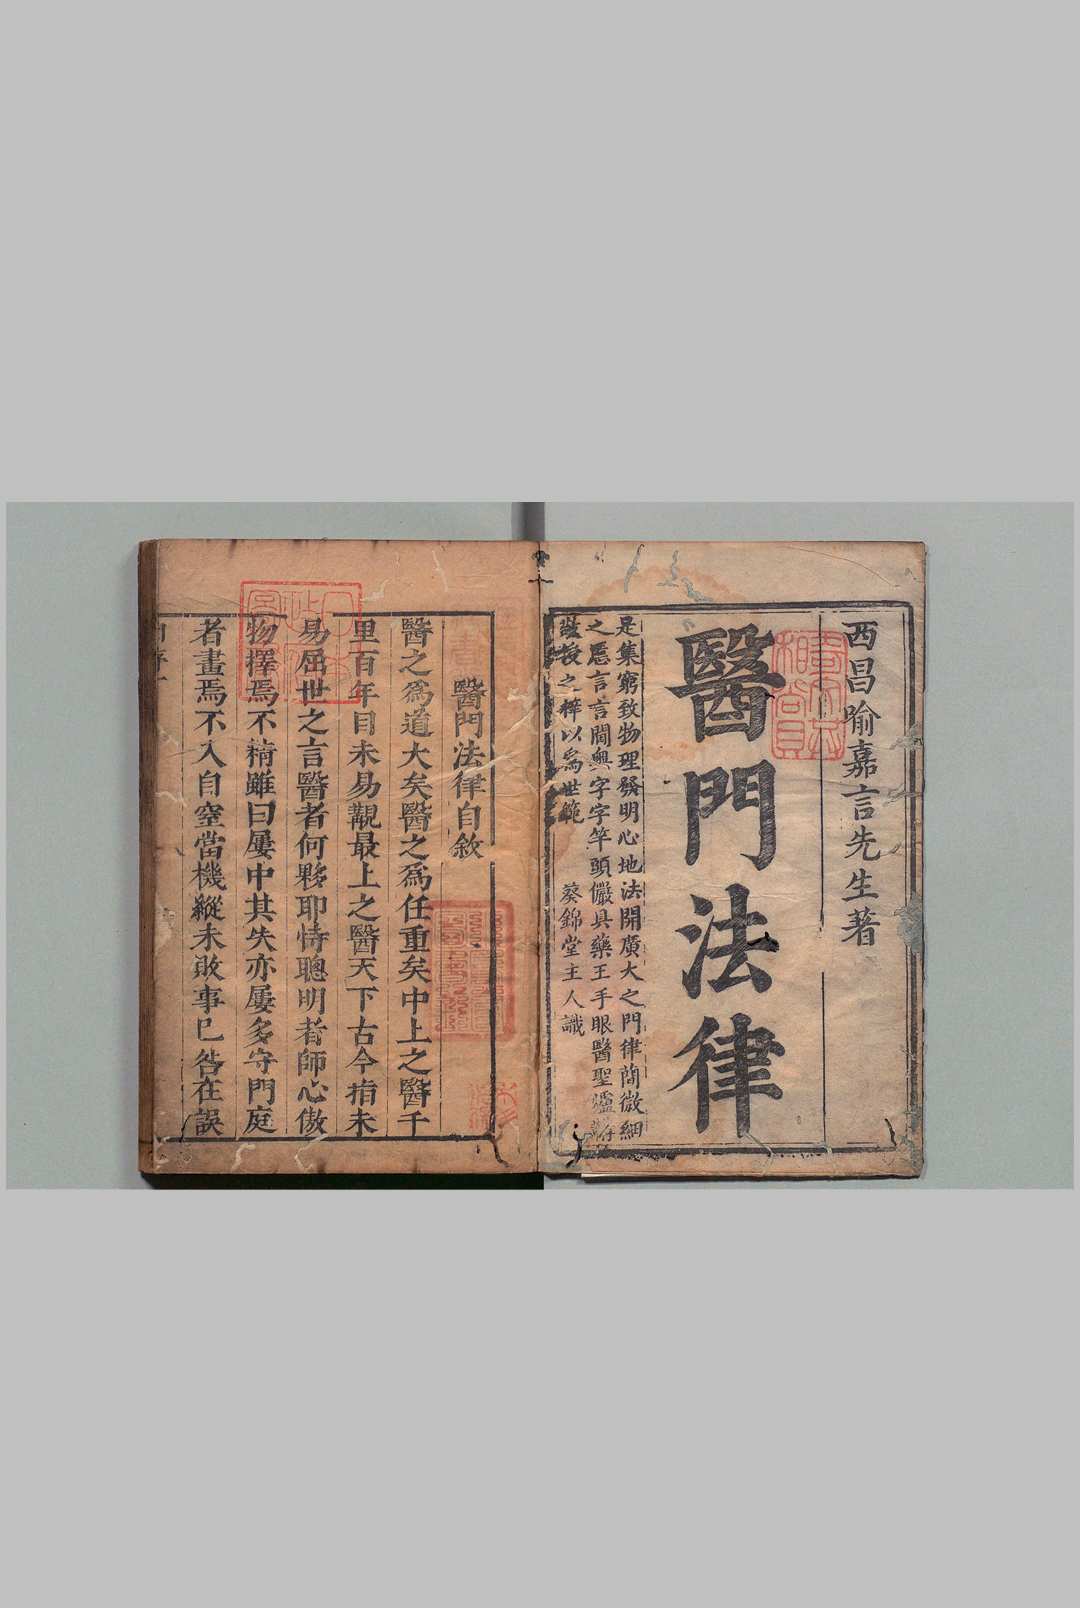 西昌喻嘉言先生著
醫門法律
是集窮致物理發明心地法開廣大之門律簡微細
之慝言言闡奧字字竿頭儼具藥王手眼醫聖爐
授之梓以爲世範　葵錦堂主人識
醫門法律自敘
醫之爲道大矣醫之爲任重矣中上之醫千
里百年目未易覯最上之醫天下古今指未
易屈世之言醫者何夥耶恃聰明者師心傲
物擇焉不精雖曰屢中其失亦屢多守門庭
者畫焉不入自窒當機縱未敗事已咎在誤